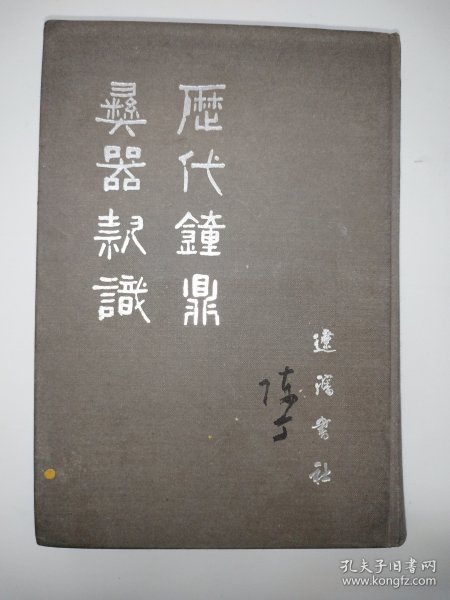 歷代鐘鼎
彝器款識
遼瀋書社
陈丁
孔夫子旧书网
www.kongfz.com